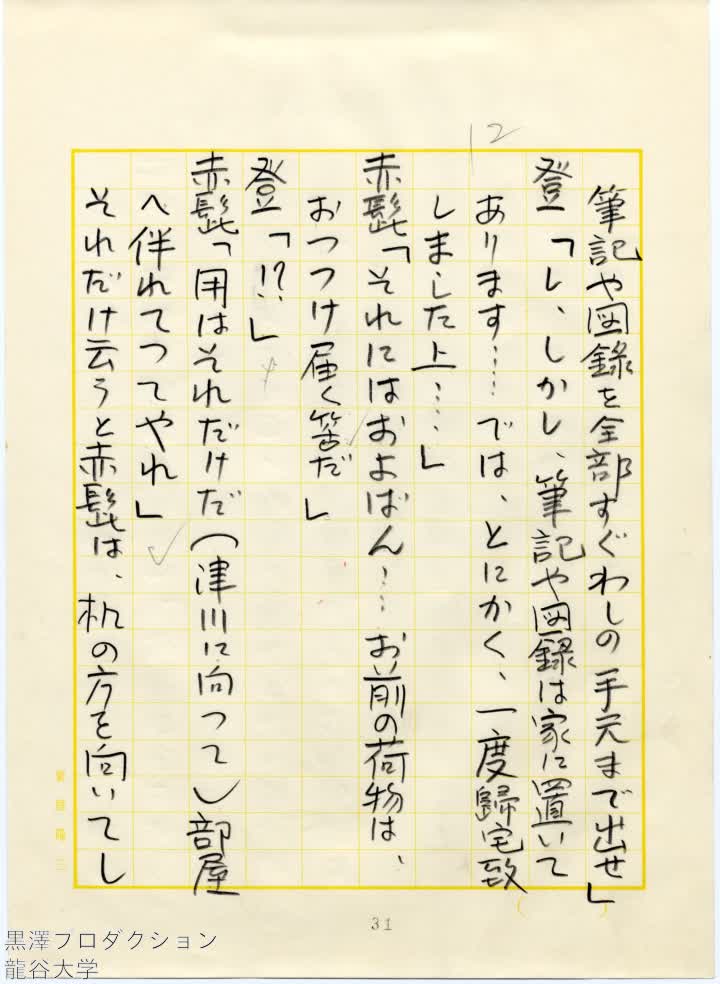 12
筆記や図録を全部すぐわしの手元まで出せ」
登「し、しかし、筆記や図録は家に置いて
あります……では、とにかく、一度歸宅致
しました上……」
赤髭「それにはおよばん……お前の荷物は、
おつつけ届く筈だ」
登「!?」
赤髭「用はそれだけだ(津川に向つて)部屋
へ伴れてつてやれ」
それだけ云うと赤髭は、机の方を向いてし
31
黒澤プロダクション
龍谷大学